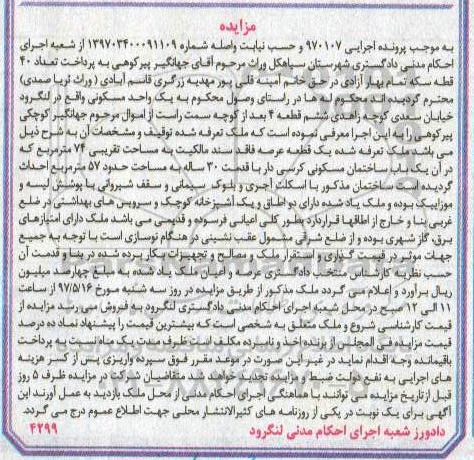 مزایده
به موجب پرونده اجرایی ۹۷۰۱۰۷ و حسب نیابت واصله شماره ۱۳۹۷۰۳۴۰۰۰۹۱۱۰۹ از شعبه اجرای
احکام مدنی دادگستری شهرستان سیاهکل وراث مرحوم آقای جهانگیر پیرکوهی به پرداخت تعداد ۴۰
قطه سکه تمام بهار آزادی در حق خانم آمینه قلی پور مهدیه زرگری قاسم آبادی (وراث ثریا صمدی)
محترم گردیده اند محکوم له ها در راستای وصول محکوم به یک واحد مسکونی واقع در لنگرود
خیابان سعدی کوچه زاهدی ششم قطعه ۴ بعد از کوچه سمت راست از اموال مرحوم جهانگیر کوچکی
پیرکوهی را به این اجرا معرفی نموده است که ملک تعرفه شده توقیف و مشخصات آن به شرح ذیل
می باشد ملک تعرفه شده یک قطعه عرصه فاقد سند مالکیت به مساحت تقریبی ۷۴ مترمربع که
در آن یک باب ساختمان مسکونی کرسی دار با قدمت ۳۰ ساله به مساحت حدود ۵۷ مترمربع احداث
گردیده است ساختمان مذکور با اسکلت آجری و بلوک سیمانی و سقف شیروانی با پوشش لیسه و
موزاییک بوده و ملک یاد شده دارای دو اطاق و یک آشپزخانه کوچک و سرویس های بهداشتی در ضلع
غربی بنا و خارج از اطاقها قراردارد بطور کلی اعیانی فرسوده و قدیمی می باشد ملک دارای امتیازهای
برق، گاز شهری بوده و از ضلع شرقی مشمول عقب نشینی در هنگام نوسازی است با توجه به جمیع
جهات موثر در قیمت گذاری و استقرار ملک و مصالح و تجهیزات بکار برده شده در بنا و قدمت آن
حسب نظریه کارشناس منتخب دادگستری عرصه و اعیان ملک یاد شده به مبلغ چهارصد میلیون
ریال برآورد و اعلام می گردد ملک مذکور از طریق مزایده در روز سه شنبه مورخ ۹۷/۵/۱۶ از ساعت
۱۱ الی ۱۲ صبح در محل شعبه اجرای احکام مدنی دادگستری لنگرود به فروش می رسد مزایده از
قیمت کارشناسی شروع و ملک متعلق به شخصی است که بیشترین قیمت را پیشنهاد نماد ده درصد
قیمت مزایده فی المجلس از برنده اخذ و نامبرده مکلف است ظرف مدت یک ماه نسبت به پرداخت
باقیمانده وجه اقدام نماید در غیر این صورت در موعد مقرر فوق سپرده واریزی پس از کسر هزینه
های اجرایی به نفع دولت ضبط و مزایده تجدید خواهد شد متقاضیان شرکت در مزایده ظرف ۵ روز
قبل ازتاریخ مزایده می توانند با هماهنگی اجرای احکام مدنی از محل ملک بازدید به عمل آورند این
آگهی برای یک نوبت در یکی از روزنامه های کثیرالانتشار محلی جهت اطلاع عموم درج می گردد.
دادورز شعبه اجرای احکام مدنی لنگرود ۴۲۹۹